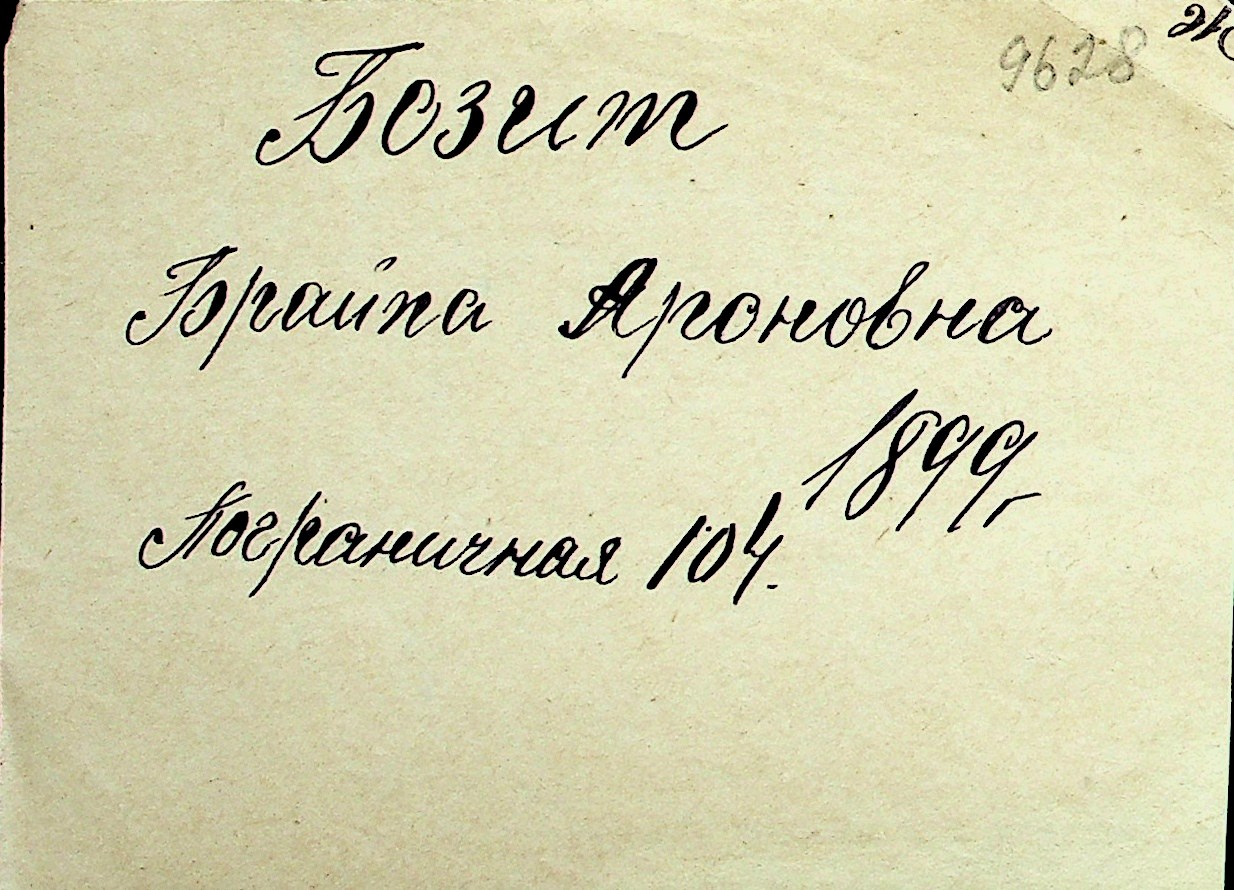 9628
Бозит
Брайна Ароновна
1899 г
Пограничная 104.